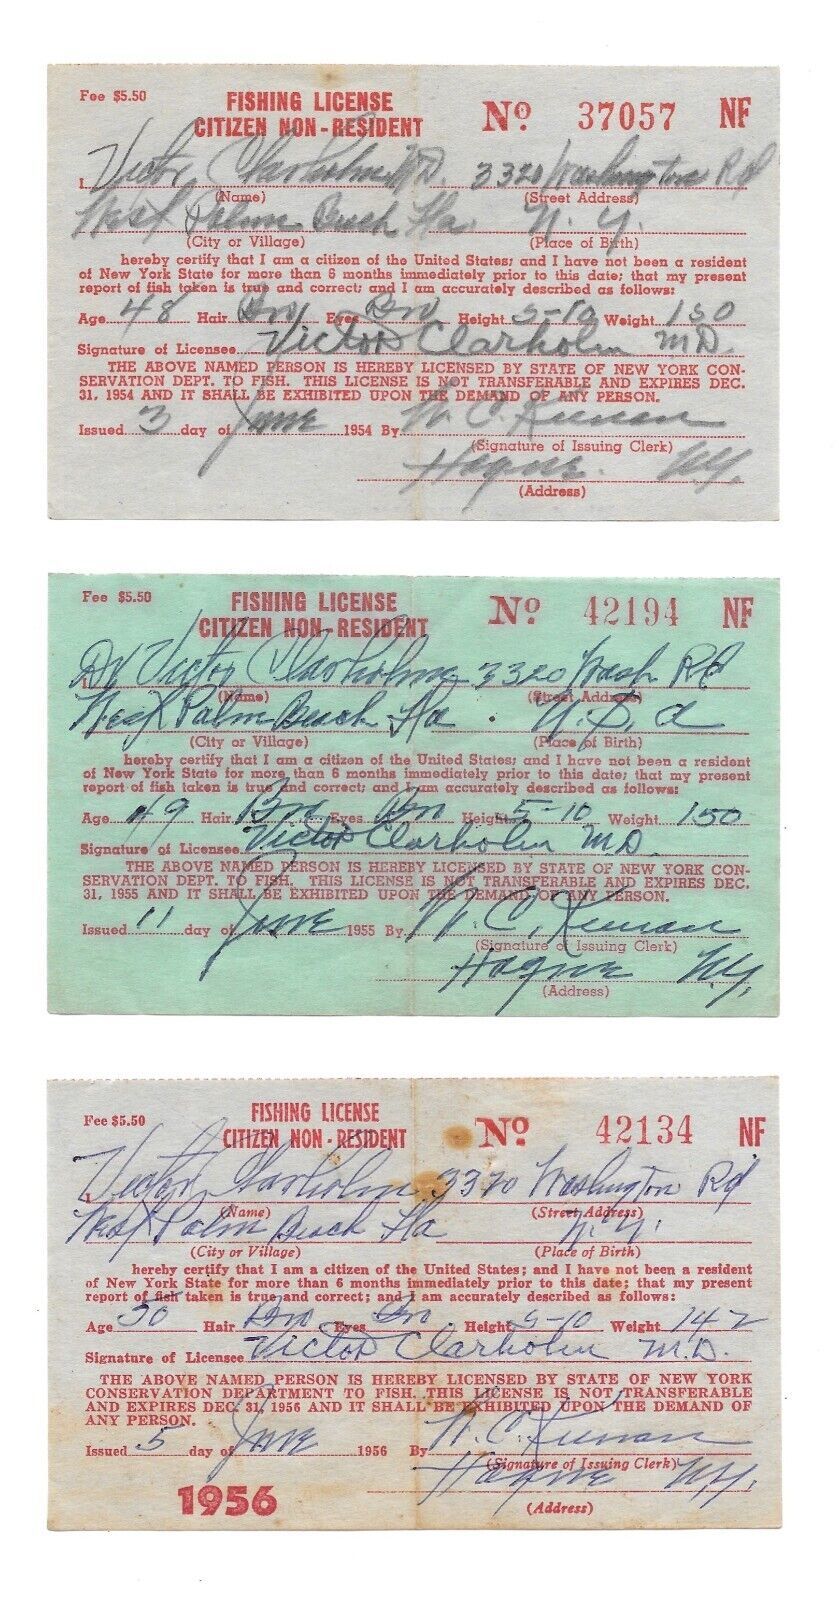 Fee $5.50 FISHING LICENSE No 37057 NF
CITIZEN NON-RESIDENT
I Victor Clarholm M.D. 3320 Washington Rd
(Name) (Street Address)
West Palm Beach Fla. N. Y.
(City or Village) (Place of Birth)
hereby certify that I am a citizen of the United States; and I have not been a resident
of New York State for more than 6 months immediately prior to this date; that my present
report of fish taken is true and correct; and I am accurately described as follows:
Age 48 Hair Brn Eyes Brn Height 5-10 Weight 150
Signature of Licensee Victor Clarholm M.D.
THE ABOVE NAMED PERSON IS HEREBY LICENSED BY STATE OF NEW YORK CON-
SERVATION DEPT. TO FISH. THIS LICENSE IS NOT TRANSFERABLE AND EXPIRES DEC.
31, 1954 AND IT SHALL BE EXHIBITED UPON THE DEMAND OF ANY PERSON.
Issued 3 day of June 1954 By W. C. Kiernan
(Signature of Issuing Clerk)
Hague N.Y.
(Address)
Fee $5.50 FISHING LICENSE No 42194 NF
CITIZEN NON-RESIDENT
I Dr Victor Clarholm 3320 Wash Rd
(Name) (Street Address)
West Palm Beach Fla. U.S.A
(City or Village) (Place of Birth)
hereby certify that I am a citizen of the United States; and I have not been a resident
of New York State for more than 6 months immediately prior to this date; that my present
report of fish taken is true and correct; and I am accurately described as follows:
Age 49 Hair Brn Eyes Brn Height 5-10 Weight 150
Signature of Licensee Victor Clarholm M.D.
THE ABOVE NAMED PERSON IS HEREBY LICENSED BY STATE OF NEW YORK CON-
SERVATION DEPT. TO FISH. THIS LICENSE IS NOT TRANSFERABLE AND EXPIRES DEC.
31, 1955 AND IT SHALL BE EXHIBITED UPON THE DEMAND OF ANY PERSON.
Issued 11 day of June 1955 By W. C. Kiernan
(Signature of Issuing Clerk)
Hague N.Y.
(Address)
Fee $5.50 FISHING LICENSE No 42134 NF
CITIZEN NON-RESIDENT
I Victor Clarholm 3320 Washington Rd
(Name) (Street Address)
West Palm Beach Fla N. Y.
(City or Village) (Place of Birth)
hereby certify that I am a citizen of the United States; and I have not been a resident
of New York State for more than 6 months immediately prior to this date; that my present
report of fish taken is true and correct; and I am accurately described as follows:
Age 50 Hair Brn Eyes Brn Height 5-10 Weight 142
Signature of Licensee Victor Clarholm M.D.
THE ABOVE NAMED PERSON IS HEREBY LICENSED BY STATE OF NEW YORK
CONSERVATION DEPARTMENT TO FISH. THIS LICENSE IS NOT TRANSFERABLE
AND EXPIRES DEC. 31, 1956 AND IT SHALL BE EXHIBITED UPON THE DEMAND OF
ANY PERSON.
Issued 5 day of June 1956 By W. C. Kiernan
(Signature of Issuing Clerk)
Hague N.Y.
1956 (Address)